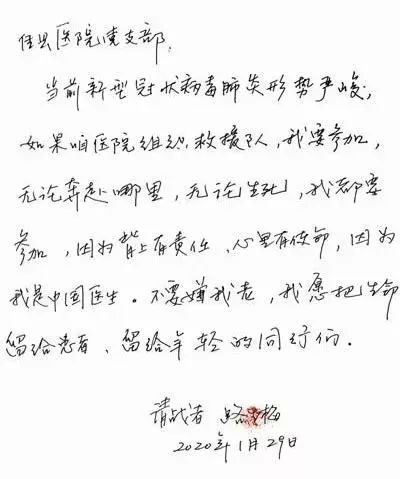 佳县医院党支部,
当前新型冠状病毒肺炎形势严峻,
如果咱医院组织救援队,我要参加,
无论奔赴哪里,无论生死,我都要
参加,因为背上有责任,心里有使命,因为
我是中国医生。不要嫌我老,我愿把生命
留给患者、留给年轻的同行们。
请战者 路 梅
2020年1月29日